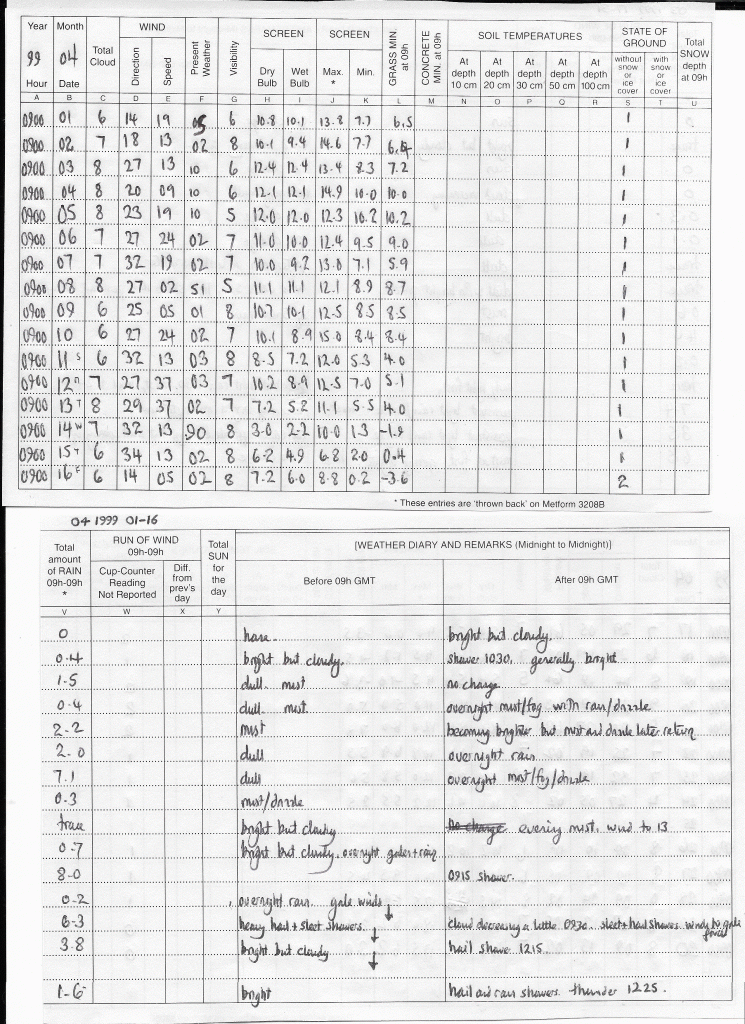 Year Month Total Cloud WIND Present Weather Visibility SCREEN SCREEN GRASS MIN. at 09h CONCRETE MIN. at 09h SOIL TEMPERATURES STATE OF GROUND Total SNOW depth at 09h
99 04 Direction Speed Dry Bulb Wet Bulb Max. * Min. At depth 10 cm At depth 20 cm At depth 30 cm At depth 50 cm At depth 100 cm without snow or ice cover with snow or ice cover
Hour Date
A B C D E F G H I J K L M N O P Q R S T U
0900 01 6 14 19 05 6 10.8 10.1 13.8 7.7 6.5 1
0900 02 7 18 13 02 8 10.1 9.4 14.6 7.7 6.4 1
0900 03 8 27 13 10 6 12.4 12.4 13.4 8.3 7.2 1
0900 04 8 20 09 10 6 12.1 12.1 14.9 10.0 10.0 1
0900 05 8 23 19 10 5 12.0 12.0 12.3 10.2 10.2 1
0900 06 7 27 24 02 7 11.0 10.0 12.4 9.5 9.0 1
0900 07 7 32 19 02 7 10.0 9.2 13.0 7.1 5.9 1
0900 08 8 27 02 51 5 11.1 11.1 12.1 8.9 8.7 1
0900 09 6 25 05 01 8 10.7 10.1 12.5 8.5 8.5 1
0900 10 6 27 24 02 7 10.1 8.9 15.0 8.4 8.4 1
0900 11 S 6 32 13 03 8 8.5 7.2 12.0 5.3 4.0 1
0900 12 7 27 37 03 7 10.2 8.9 12.5 7.0 5.1 1
0900 13 T 8 29 37 02 7 7.2 5.2 11.1 5.5 4.0 1
0900 14 W 7 32 13 90 8 3.0 2.2 10.0 1.3 -1.9 1
0900 15 T 6 34 13 02 8 6.2 4.9 6.8 2.0 0.4 1
0900 16 F 6 14 05 02 8 7.2 6.0 8.8 0.2 -3.6 2
* These entries are 'thrown back' on Metform 3208B
04 1999 01-16
Total amount of RAIN 09h-09h * RUN OF WIND 09h-09h Total SUN for the day [WEATHER DIARY AND REMARKS (Midnight to Midnight)]
Cup-Counter Reading Not Reported Diff. from prev's day Before 09h GMT After 09h GMT
V W X Y
0 haze. bright but cloudy.
0.4 bright but cloudy. shower 1030. generally bright
1.5 dull. mist no change
0.4 dull. mist. overnight mist/fog with rain/drizzle
2.2 mist becoming brighter but mist and drizzle later return
2.0 dull overnight rain
7.1 dull overnight mist/fog/drizzle
0.3 mist/drizzle
trace bright but cloudy no change evening mist. wind to 13
0.7 bright but cloudy, overnight gales + rain
8.0 0915 shower.
0.2 overnight rain. gale winds ↓
6.3 heavy hail + sleet showers. ↓ cloud decreasing a little 0930. sleet + hail showers windy to gale force
3.8 bright but cloudy ↓ hail shower 1215.
1.6 bright hail and rain showers. thunder 1225.